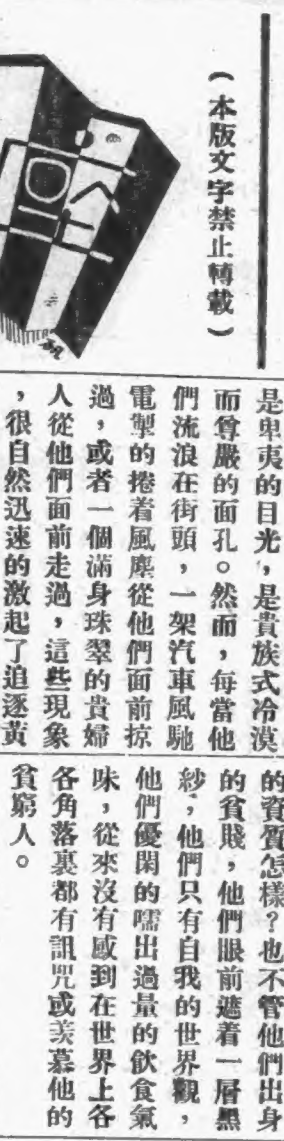 （本版文字禁止轉載）
是卑夷的目光，是貴族式冷漠
而尊嚴的面孔。然而，每當他
們流浪在街頭，一架汽車風馳
電掣的捲着風塵從他們面前掠
過，或者一個滿身珠翠的貴婦
人從他們面前走過，這些現象
，很自然迅速的激起了追逐黃
的資質怎樣？也不管他們出身
的貧賤，他們眼前遮着一層黑
紗，他們只有自我的世界觀，
他們優閑的嚅出過量的飲食氣
味，從來沒有感到在世界上各
各角落裏都有訊咒或羨慕他的
貧窮人。